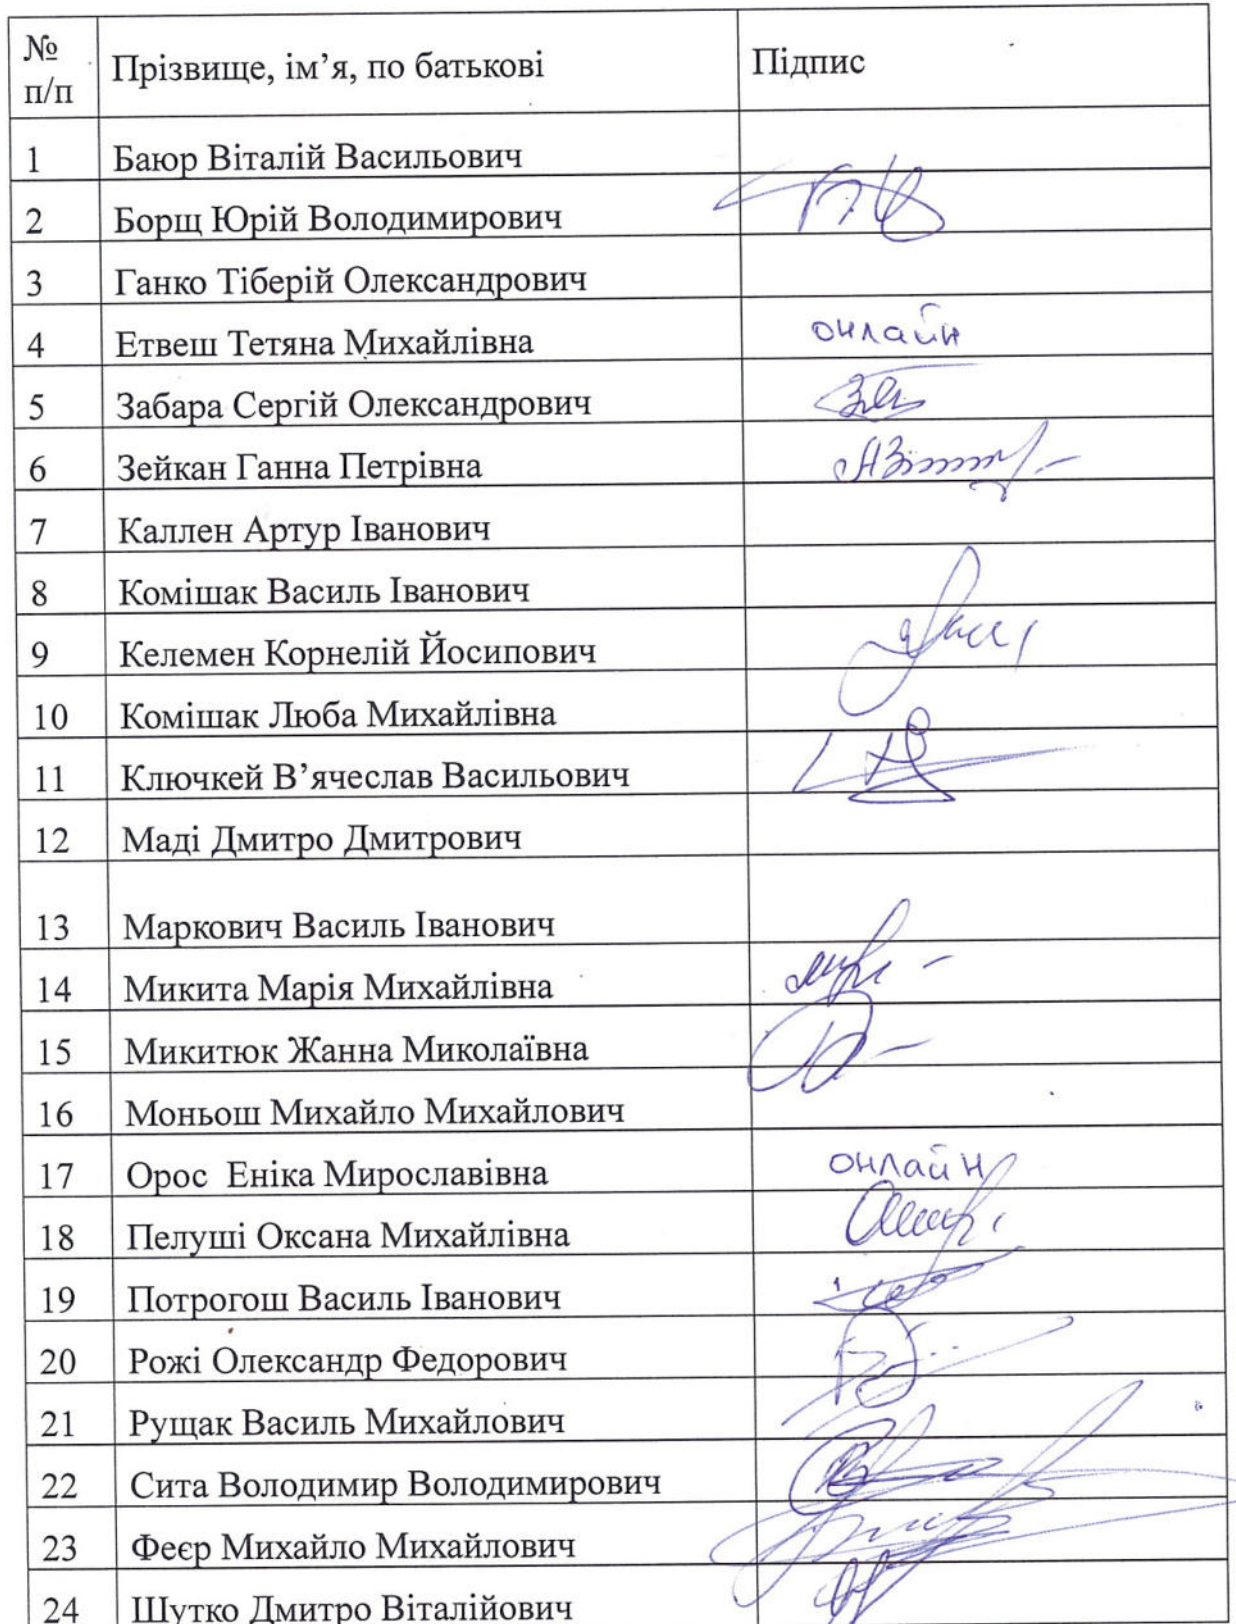 № п/п Прізвище, ім’я, по батькові Підпис
1 Баюр Віталій Васильович
2 Борщ Юрій Володимирович
3 Ганко Тіберій Олександрович
4 Етвеш Тетяна Михайлівна онлайн
5 Забара Сергій Олександрович
6 Зейкан Ганна Петрівна
7 Каллен Артур Іванович
8 Комішак Василь Іванович
9 Келемен Корнелій Йосипович
10 Комішак Люба Михайлівна
11 Ключкей В’ячеслав Васильович
12 Маді Дмитро Дмитрович
13 Маркович Василь Іванович
14 Микита Марія Михайлівна
15 Микитюк Жанна Миколаївна
16 Моньош Михайло Михайлович
17 Орос Еніка Мирославівна онлайн
18 Пелуші Оксана Михайлівна
19 Потрогош Василь Іванович
20 Рожі Олександр Федорович
21 Рущак Василь Михайлович
22 Сита Володимир Володимирович
23 Феєр Михайло Михайлович
24 Шутко Дмитро Віталійович